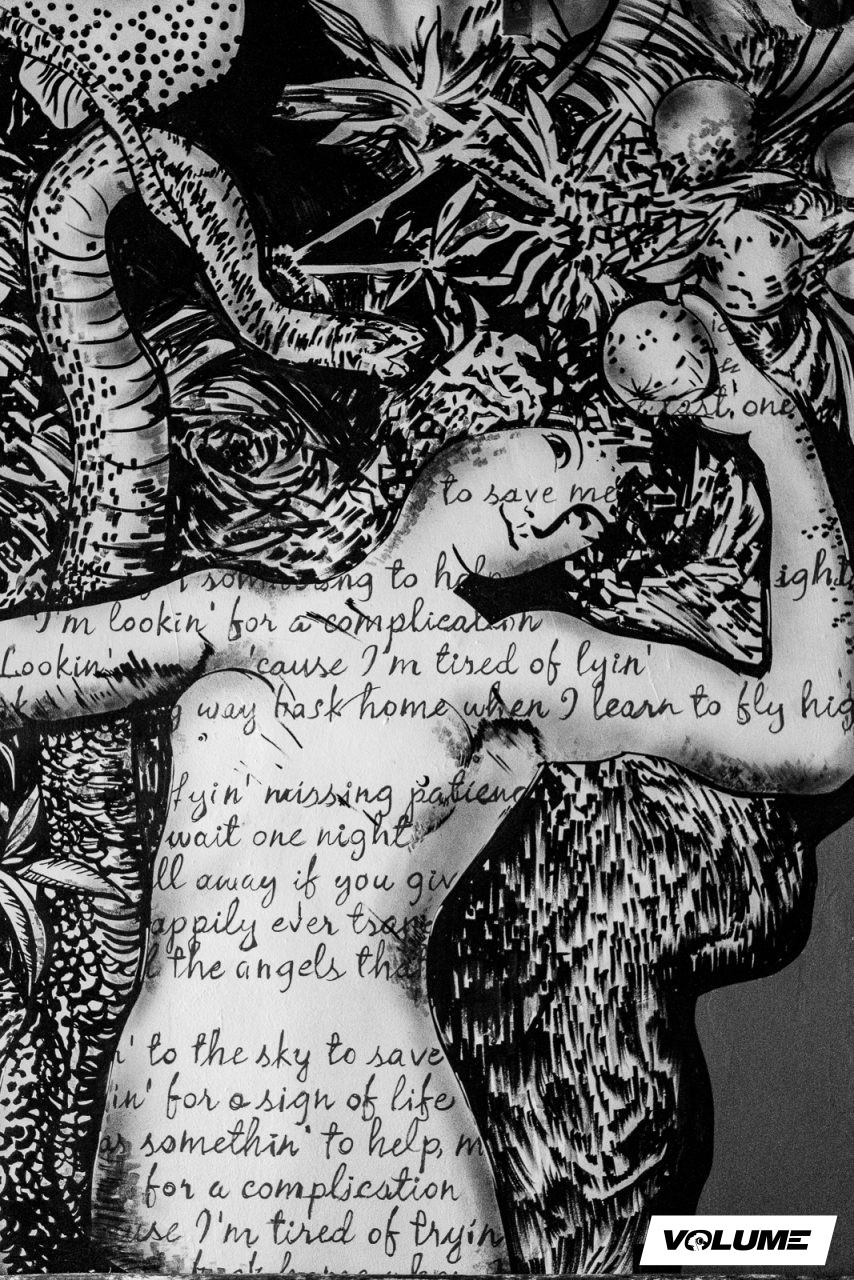 ast, one
to save me
somthing to help
ight
I'm lookin' for a complication
Lookin' 'cause I'm tired of lyin'
way bask home when I learn to fly hig
fyin' missing patienc
wait one night
ll away if you giv
appily ever
the angels tha
n' to the sky to save
in' for a sign of life
as somethin' to help, m
for a complication
use I'm tired of tryin
VOLUME